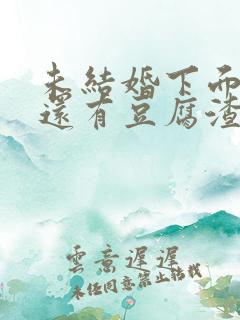 未結婚下面
還有豆腐渣
雲意遲遲
未經同意禁止轉載